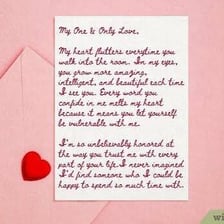 My One & Only Love,
My heart flutters everytime you
walk into the room. In my eyes,
you grow more amazing,
intelligent, and beautiful each time
I see you. Every word you
confide in me melts my heart
because it means you let yourself
be vulnerable with me.
I'm so unbelievably honored at
the way you trust me with every
part of your life. I never imagined
I'd find someone who I could be
happy to spend so much time with.
wi